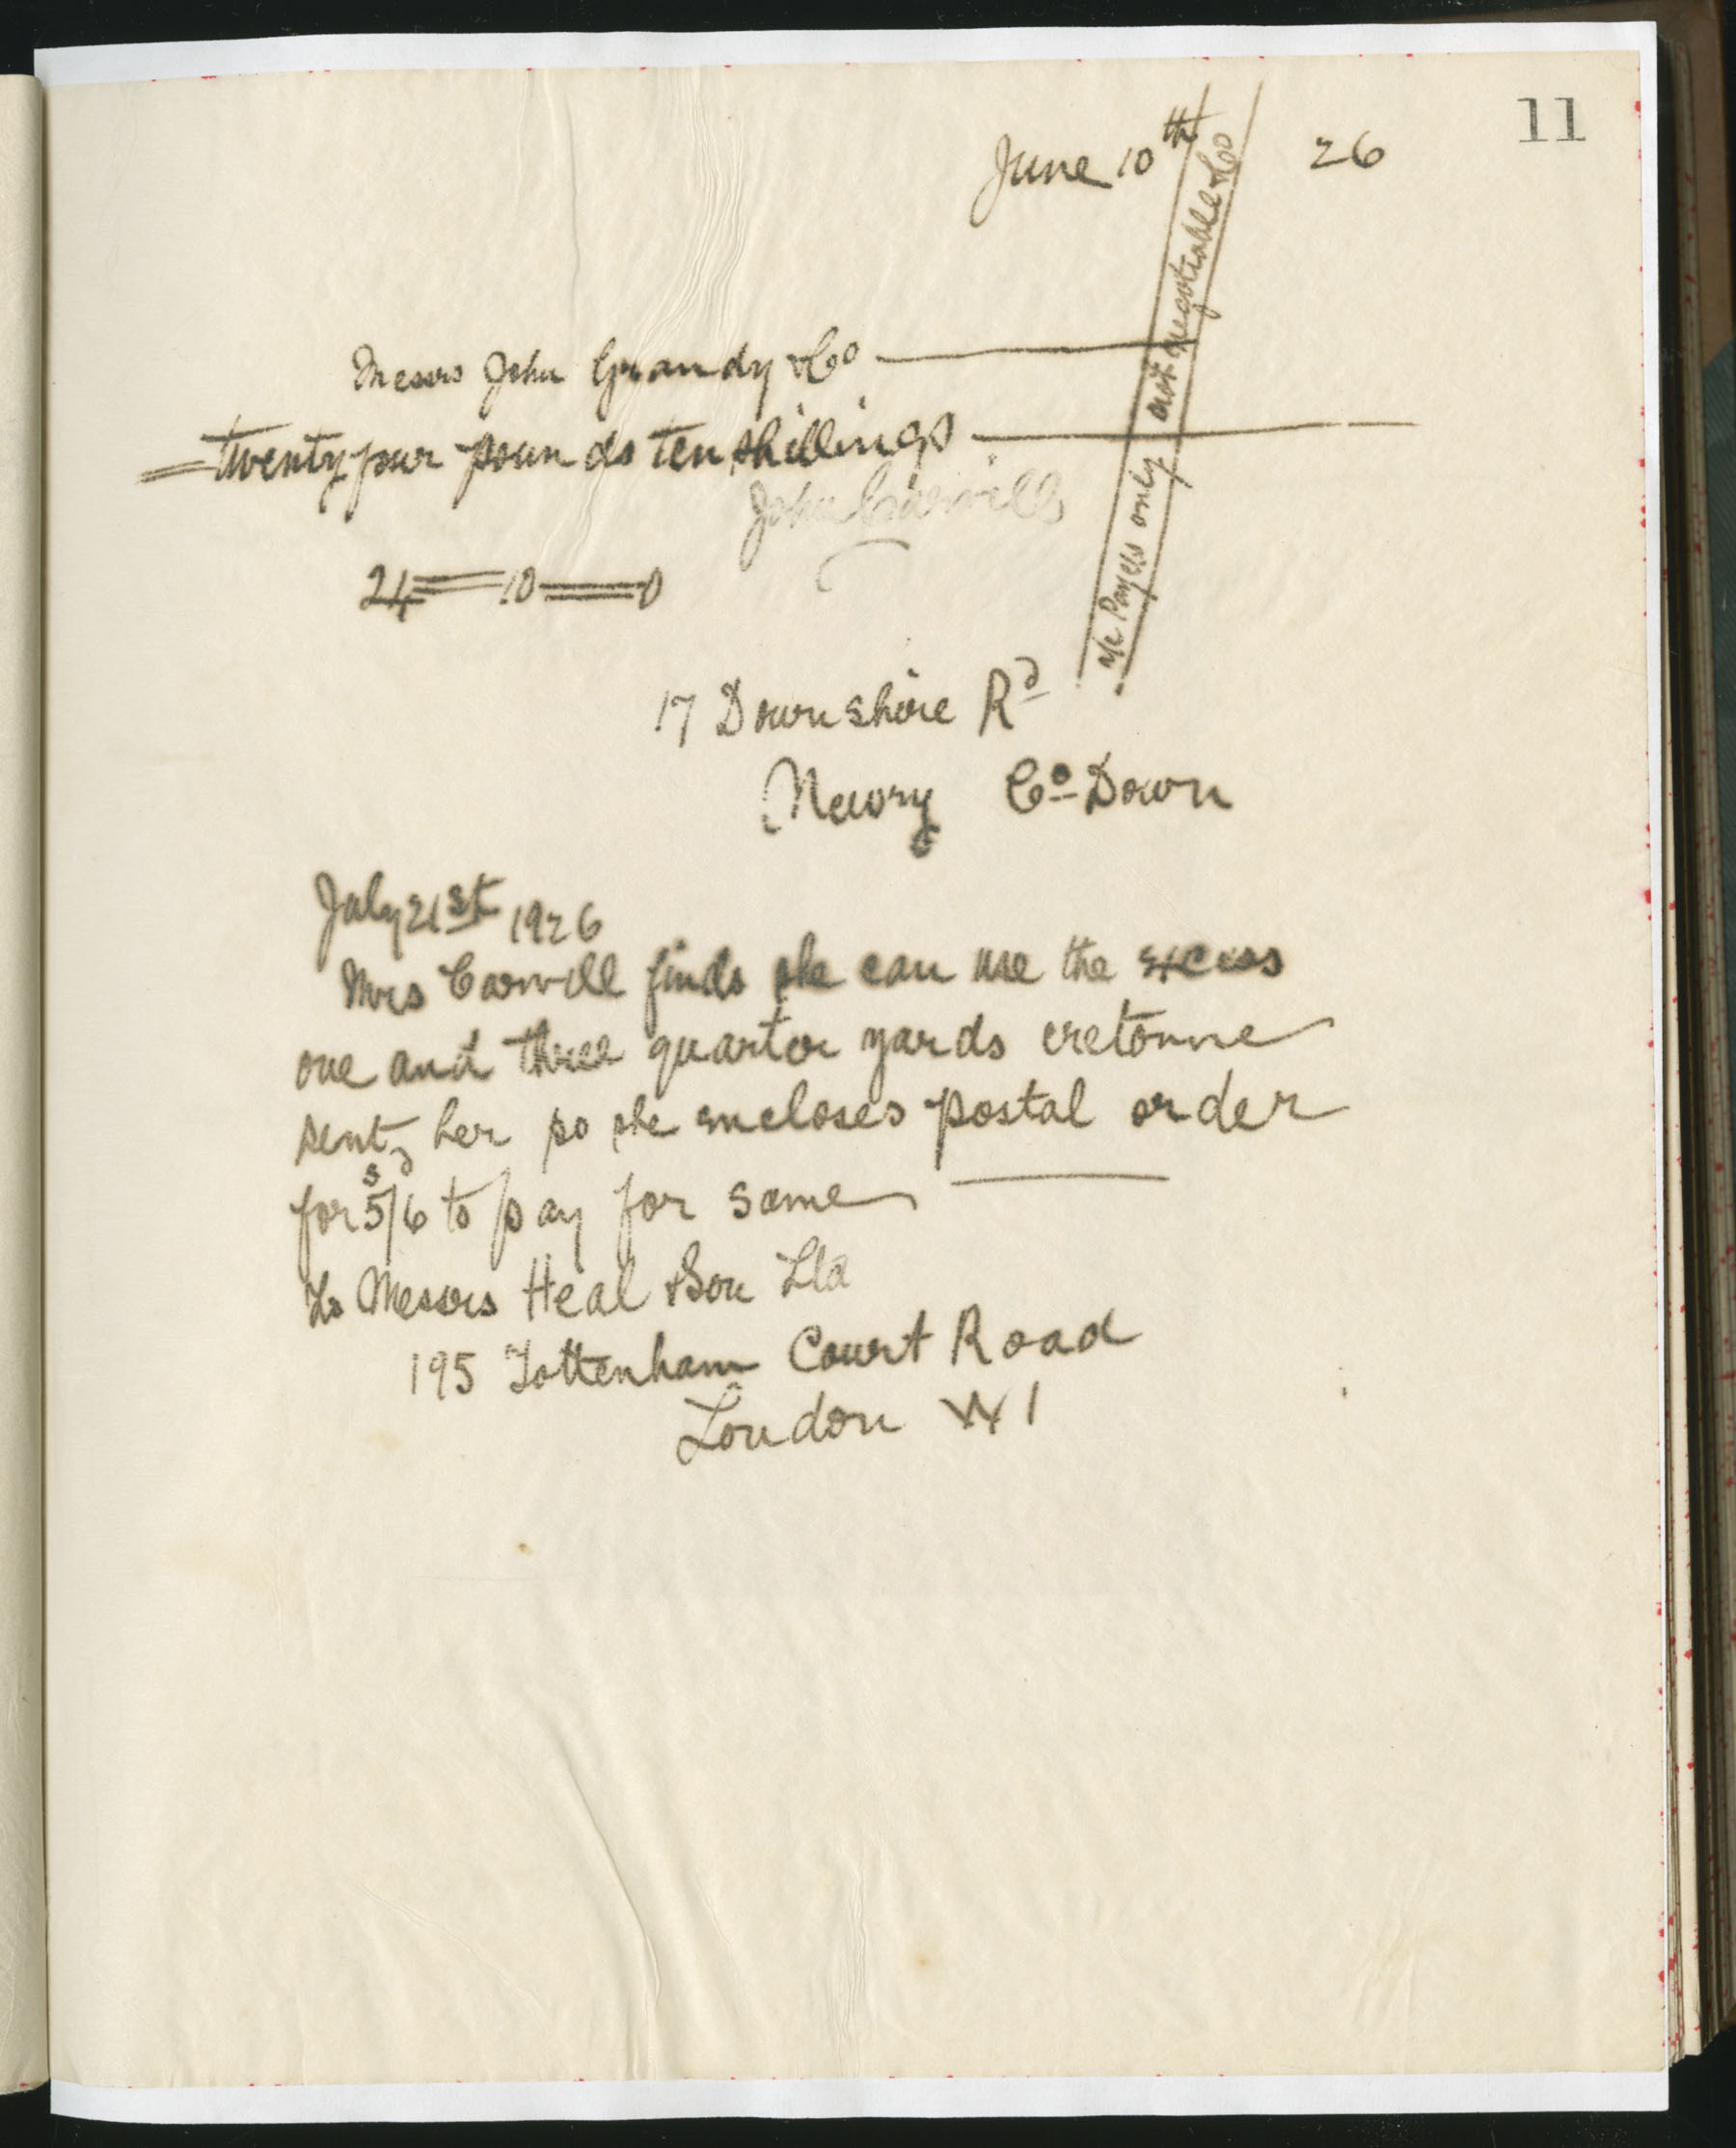 11
June 10th 26
a/c Payees only not negotiable & Co
Messrs John Grandy & Co
twenty four pounds ten shillings
John Carvill
24 = 10 = 0
17 Downshire Rd
Newry Co Down
July 21st 1926
Mrs Carvill finds she can use the excess
one and three quarter yards cretonne
sent her so she encloses postal order
for 5s/6d to pay for same
To Messrs Heal & Son Ltd
195 Tottenham Court Road
London W 1